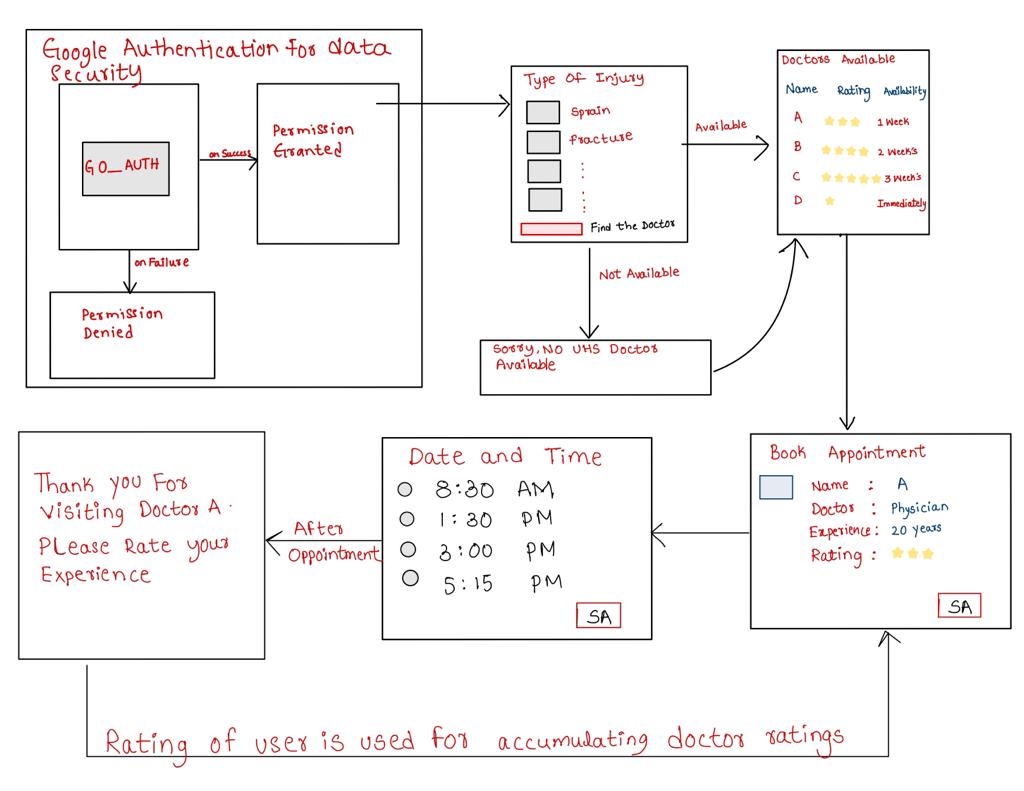 Google Authentication For data
Security
GO_AUTH
on Success
Permission
Granted
on Failure
Permission
Denied
Type Of Injury
Sprain
fracture
Find the Doctor
Available
Not Available
Sorry, No UHS Doctor
Available
Doctors Available
Name Rating Availability
A 1 Week
B 2 Week's
C 3 Week's
D Immediately
Book Appointment
Name : A
Doctor : Physician
Experience : 20 years
Rating :
SA
Date and Time
8:30 AM
1:30 PM
3:00 PM
5:15 PM
SA
After
Oppointment
Thank you For
Visiting Doctor A.
Please Rate your
Experience
Rating of user is used for accumulating doctor ratings